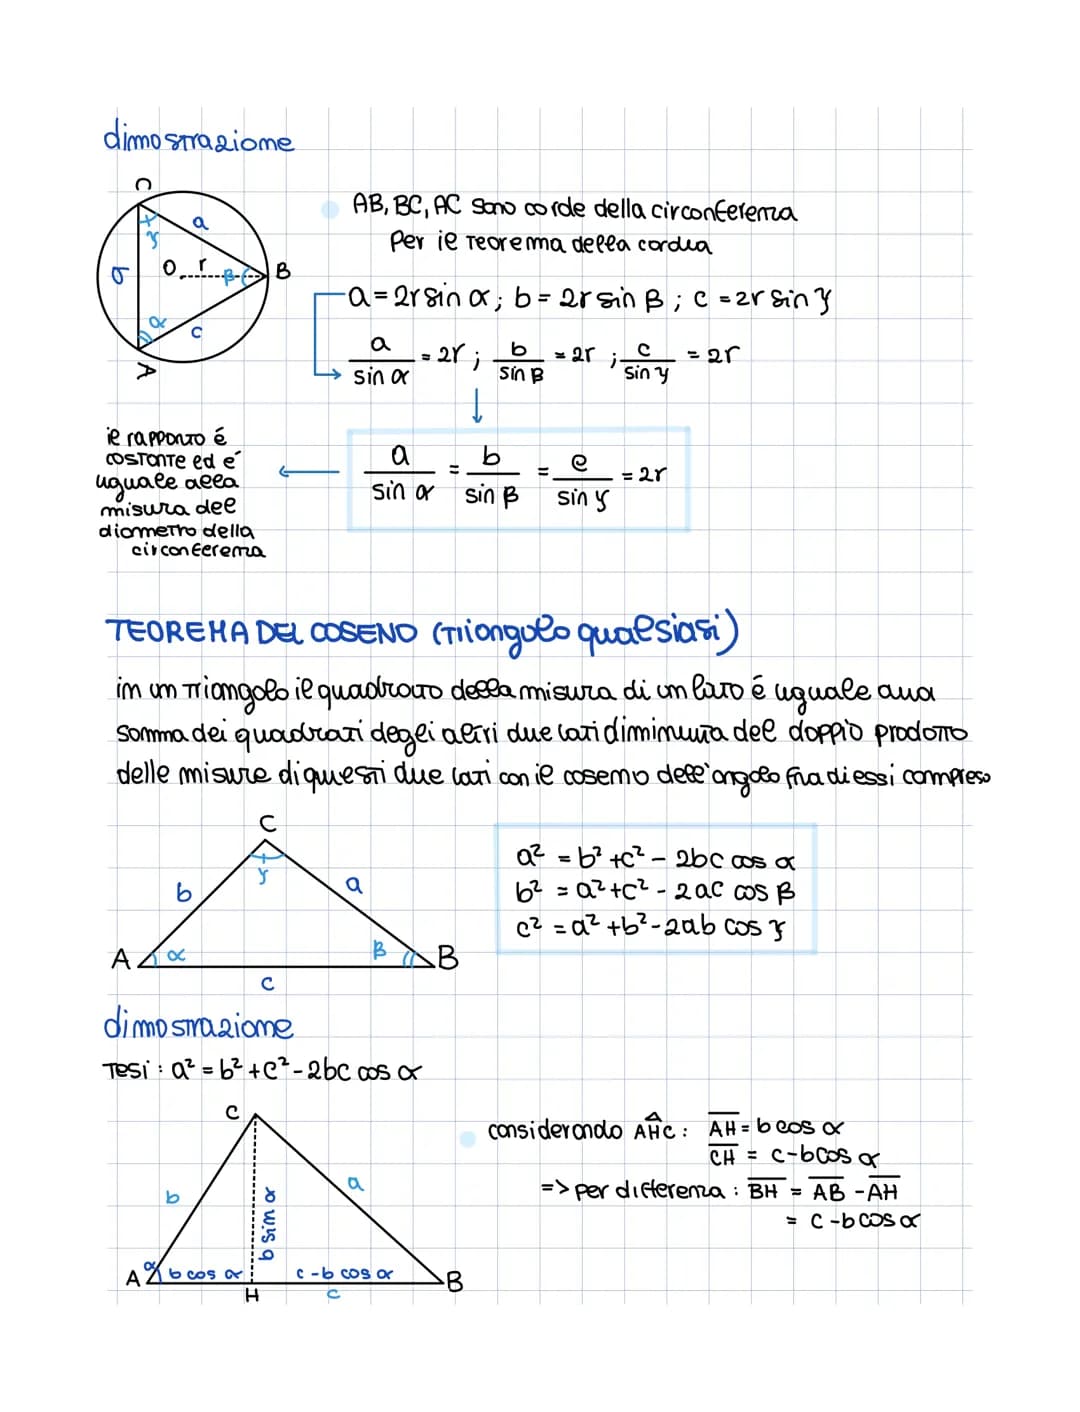 dimostrazione
C
a
γ
b
O
r
β
B
α
c
A
AB, BC, AC sono corde della circonferenza
Per il teorema della corda
a = 2r sin α; b = 2r sin β; c = 2r sin γ
a/sin α = 2r; b/sin β = 2r; c/sin γ = 2r
a/sin α = b/sin β = c/sin γ = 2r
il rapporto é
costante ed é
uguale alla
misura del
diametro della
circonferenza
TEOREMA DEL COSENO (triangolo qualsiasi)
in un triangolo il quadrato della misura di un lato é uguale alla
somma dei quadrati degli altri due lati diminuita del doppio prodotto
delle misure di questi due lati con il coseno dell'angolo fra di essi compreso
C
γ
b
a
A
α
β
B
c
a² = b² + c² - 2bc cos α
b² = a² + c² - 2ac cos β
c² = a² + b² - 2ab cos γ
dimostrazione
Tesi: a² = b² + c² - 2bc cos α
C
b
a
b sin α
A
α
b cos α
c - b cos α
B
H
c
considerando AĤC: AH = b cos α
CH = c - b cos α
=> per differenza: BH = AB - AH
= c - b cos α